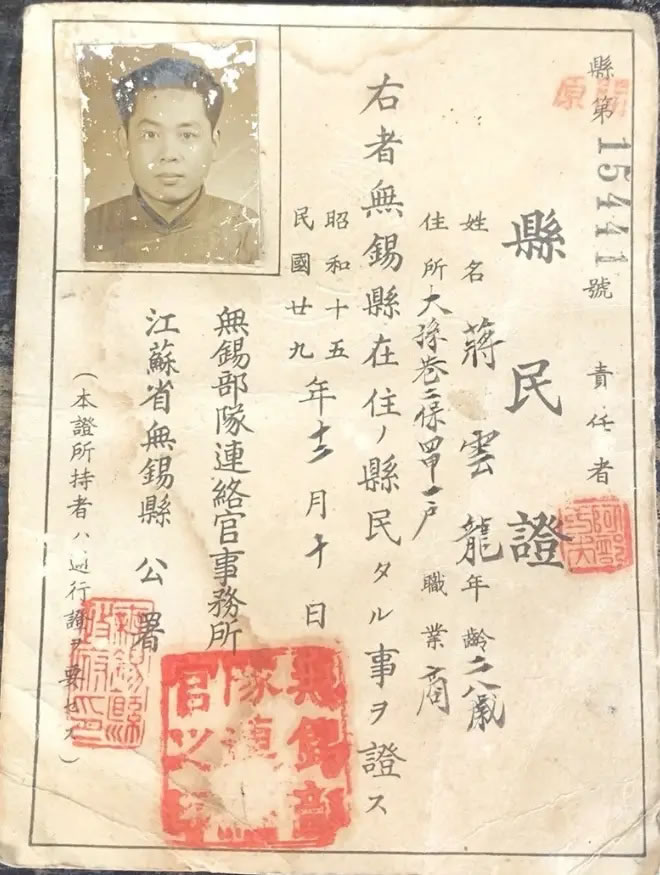 開原
縣第15441號 責任者
縣民證
姓名 蔣雲龍 年齡 二八歲
住所 大孫巷三保四甲一戶 職業 商
右者無錫縣在住ノ縣民タル事ヲ證ス
昭和十五
民國廿九
年十二月十日
無錫部隊連絡官事務所
江蘇省無錫縣公署
(本證所持者ハ通行證ヲ要セス)
無錫部
隊連絡
官之印